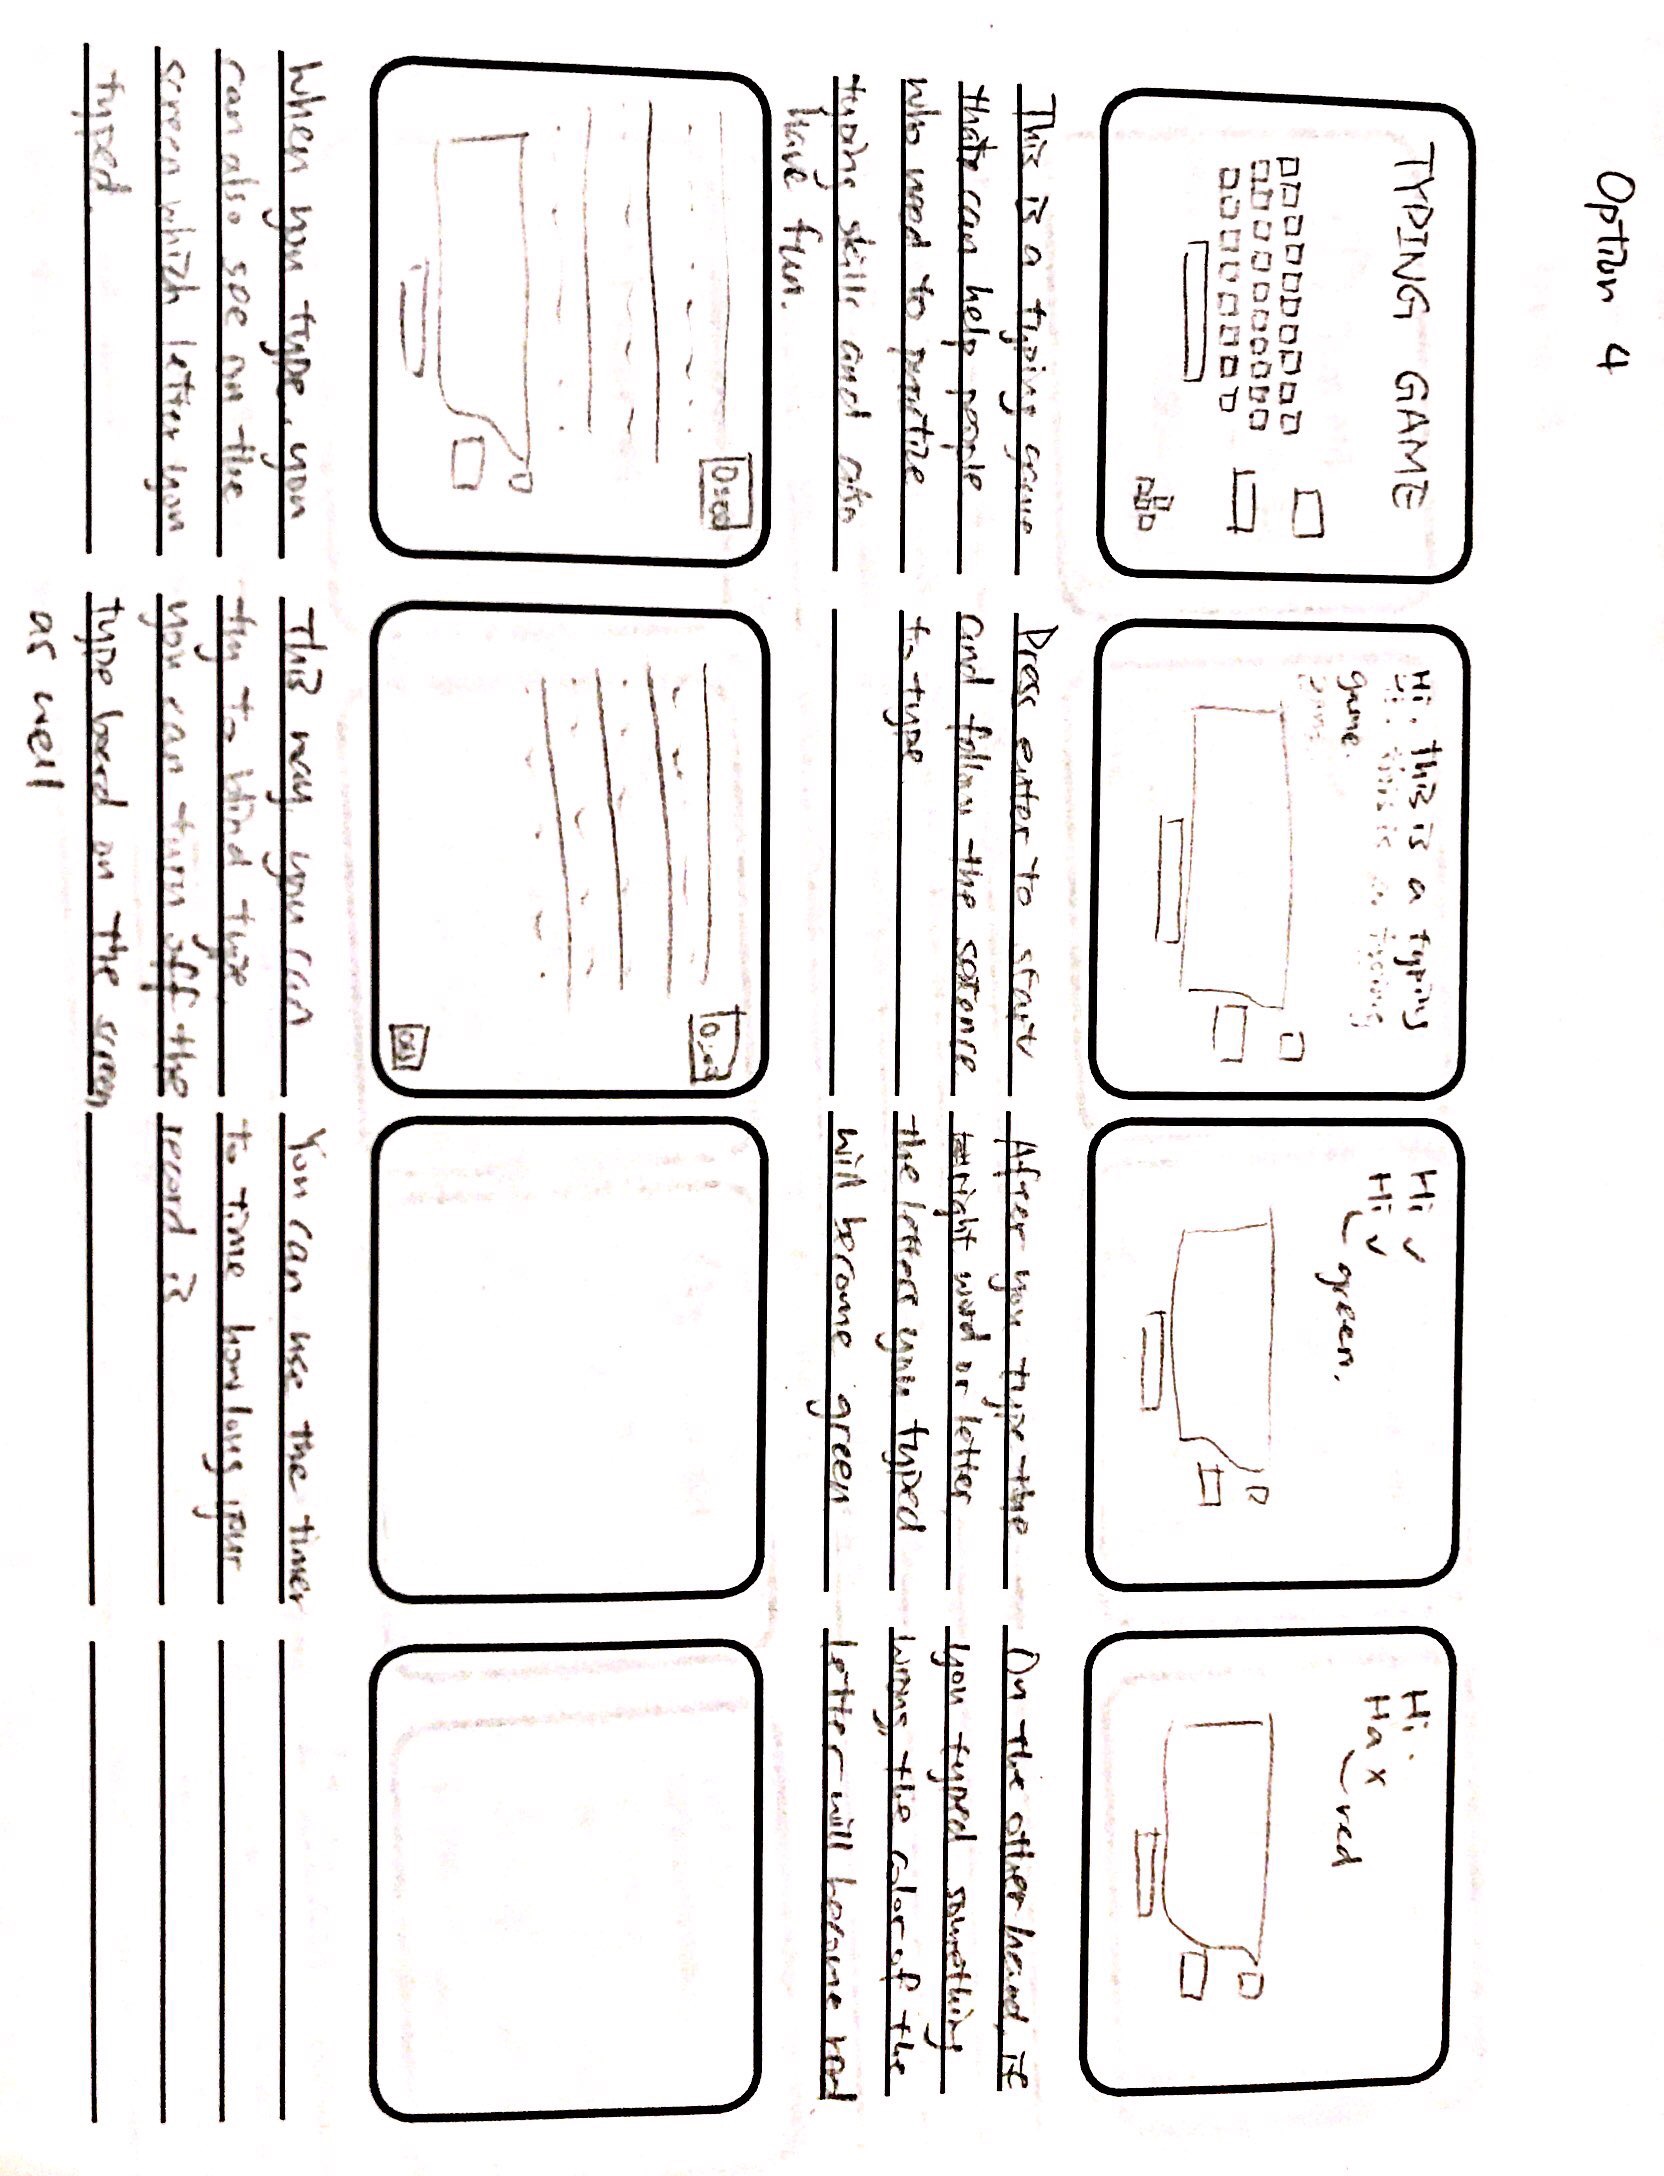 Option 4
TYPING GAME
This is a typing game
that can help people
who need to practize
typing skills and also
have fun.
Hi, this is a typing
game.
Press enter to start
and follow the sentence
to type
Hi ✓
Hi ✓
green.
After you type the
right word or letter
the letters you typed
will become green
Hi.
Ha x
red
On the other hand, if
you typed something
wrong the color of the
letter will become red
When you type, you
can also see on the
screen which letter you
typed.
This way you can
try to blind type.
you can turn off the
type board on the screen
as well
You can use the timer
to time how long your
record is